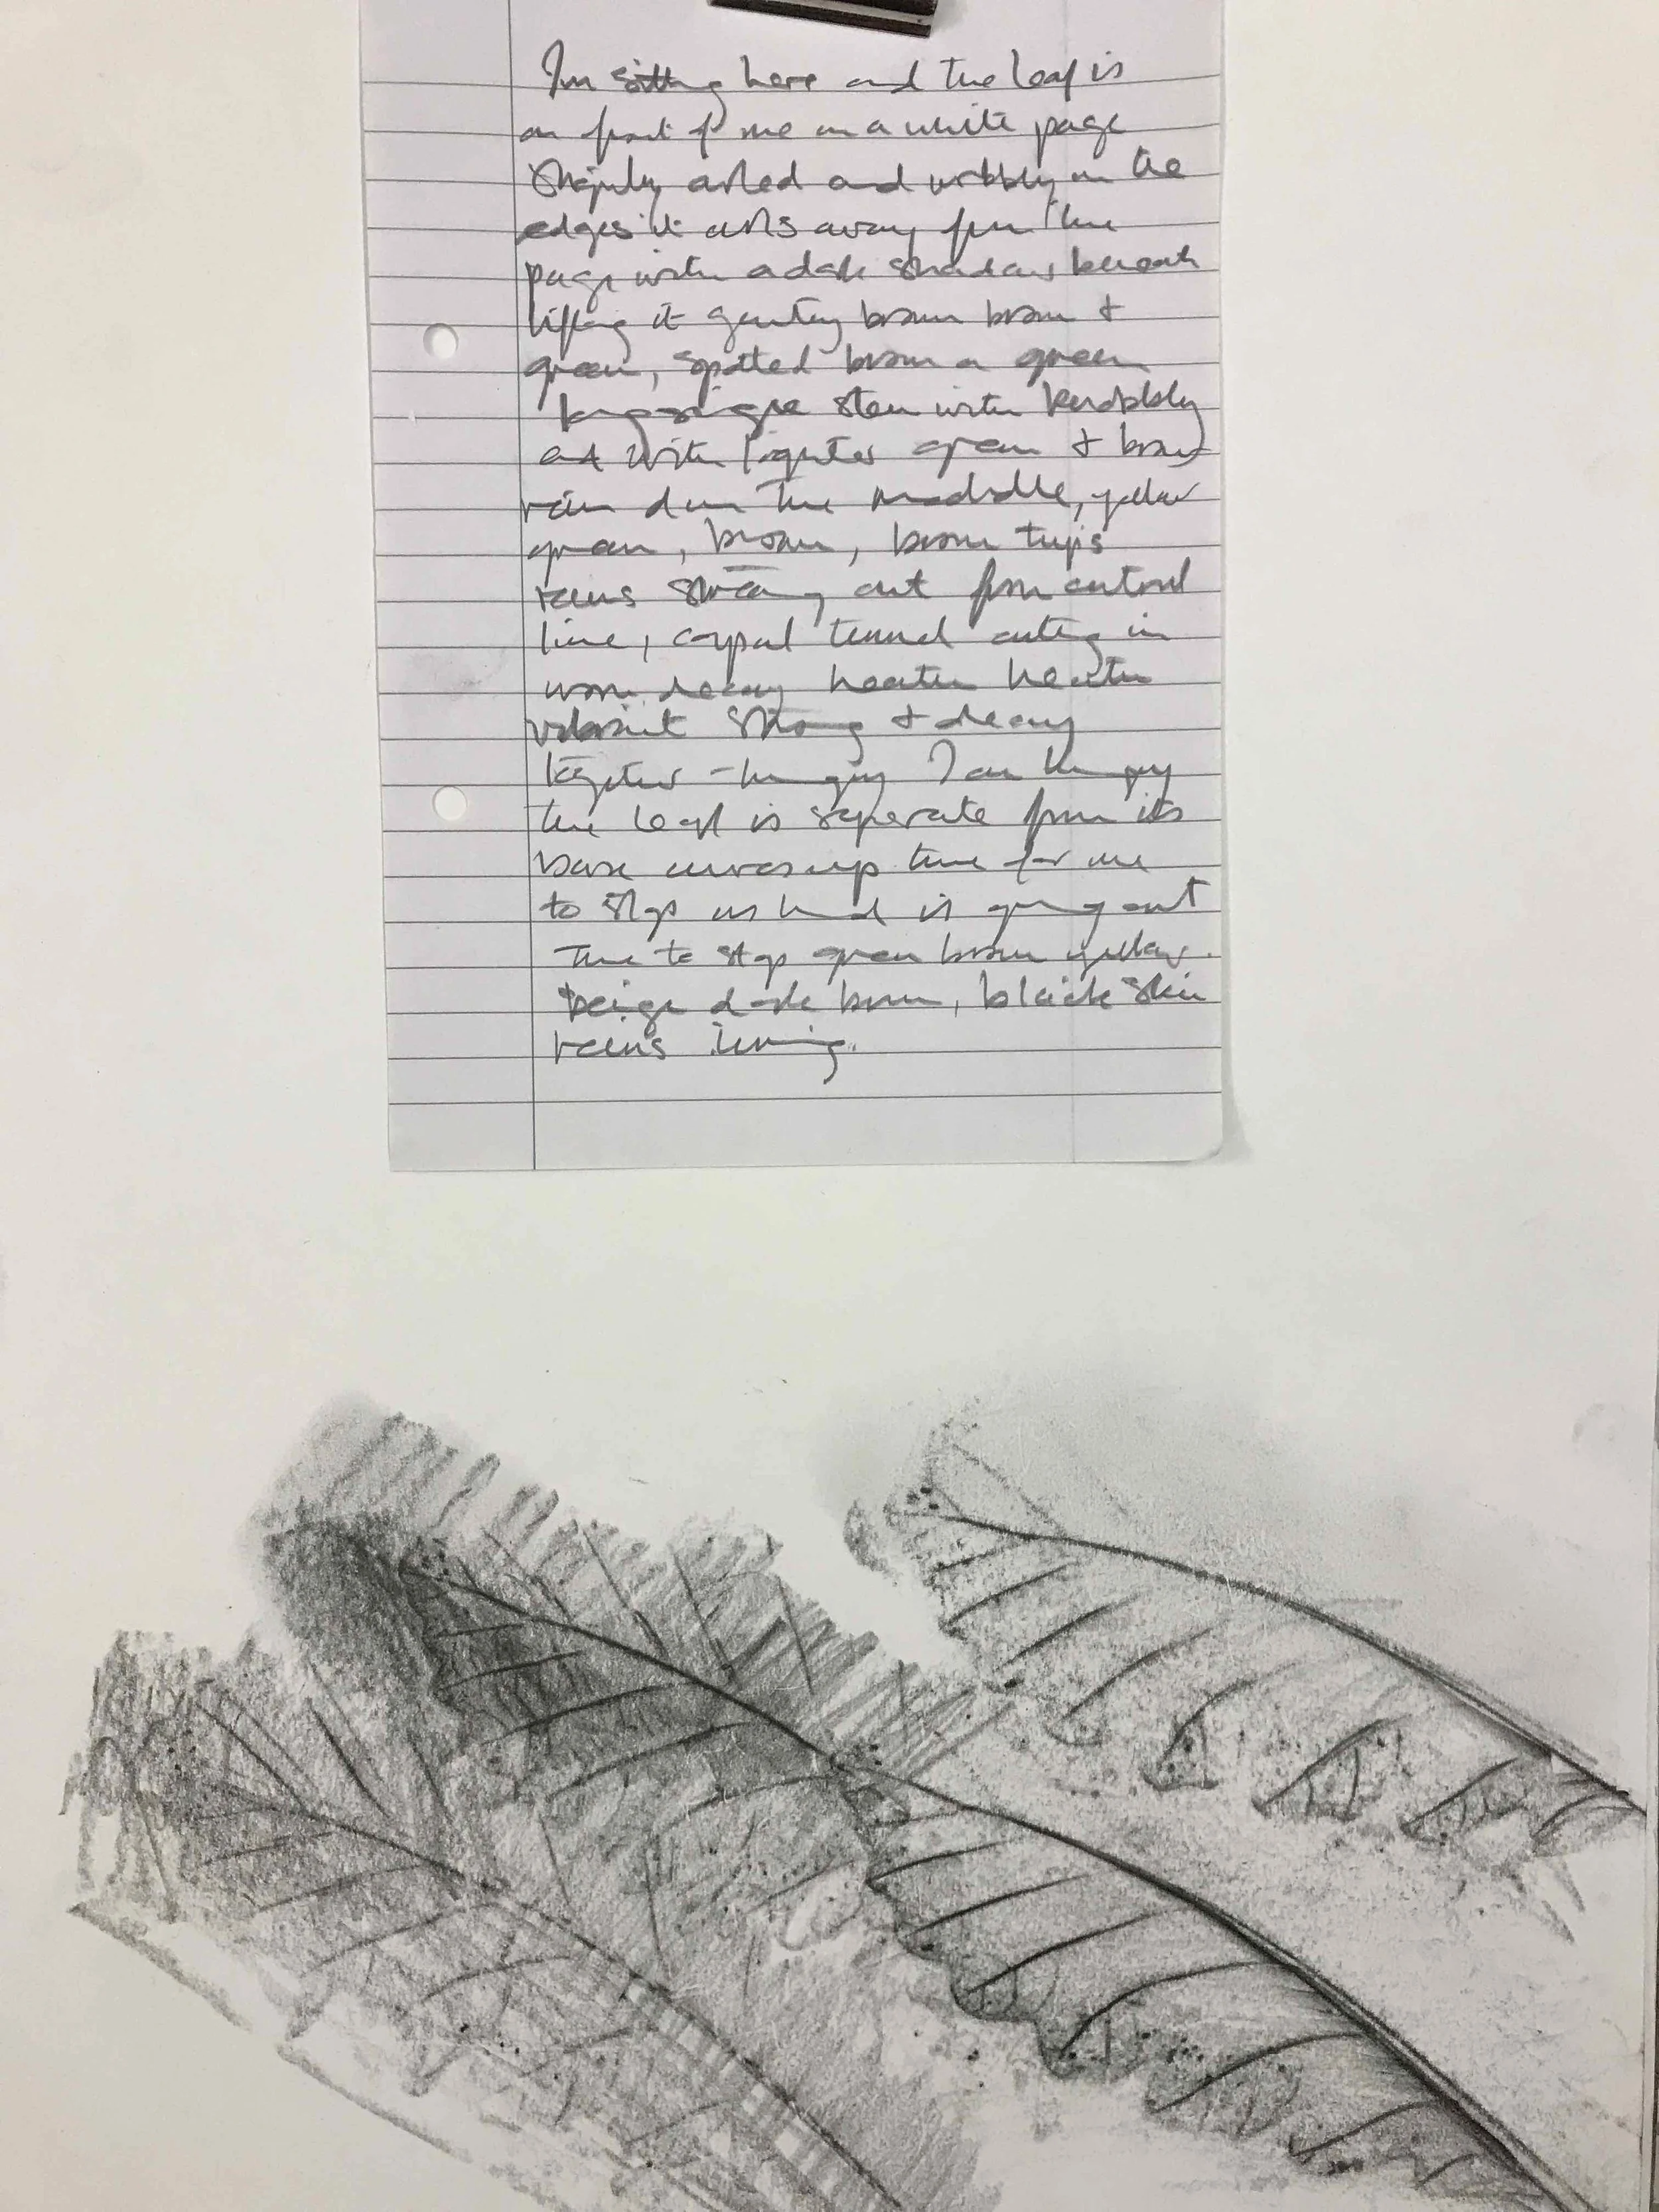 Im sitting here and the leaf is
in front of me on a white page
Slightly curled and wobbly on the
edges it curls away from the
page with a dark shadow beneath
lifting it gently brown brown &
green, spotted brown a green
stem with knobbly
end with lighter green & brown
vein down the middle, yellow
green, brown, brown tips
veins out from central
line, carpal tunnel cutting in
worn decay heather heather
vibrant strong & decay
together - hungry I am hungry
the leaf is seperate from its
base curves up time for me
to stop as hand is giving out
Time to stop green brown yellow.
beige dark brown, black skin
veins